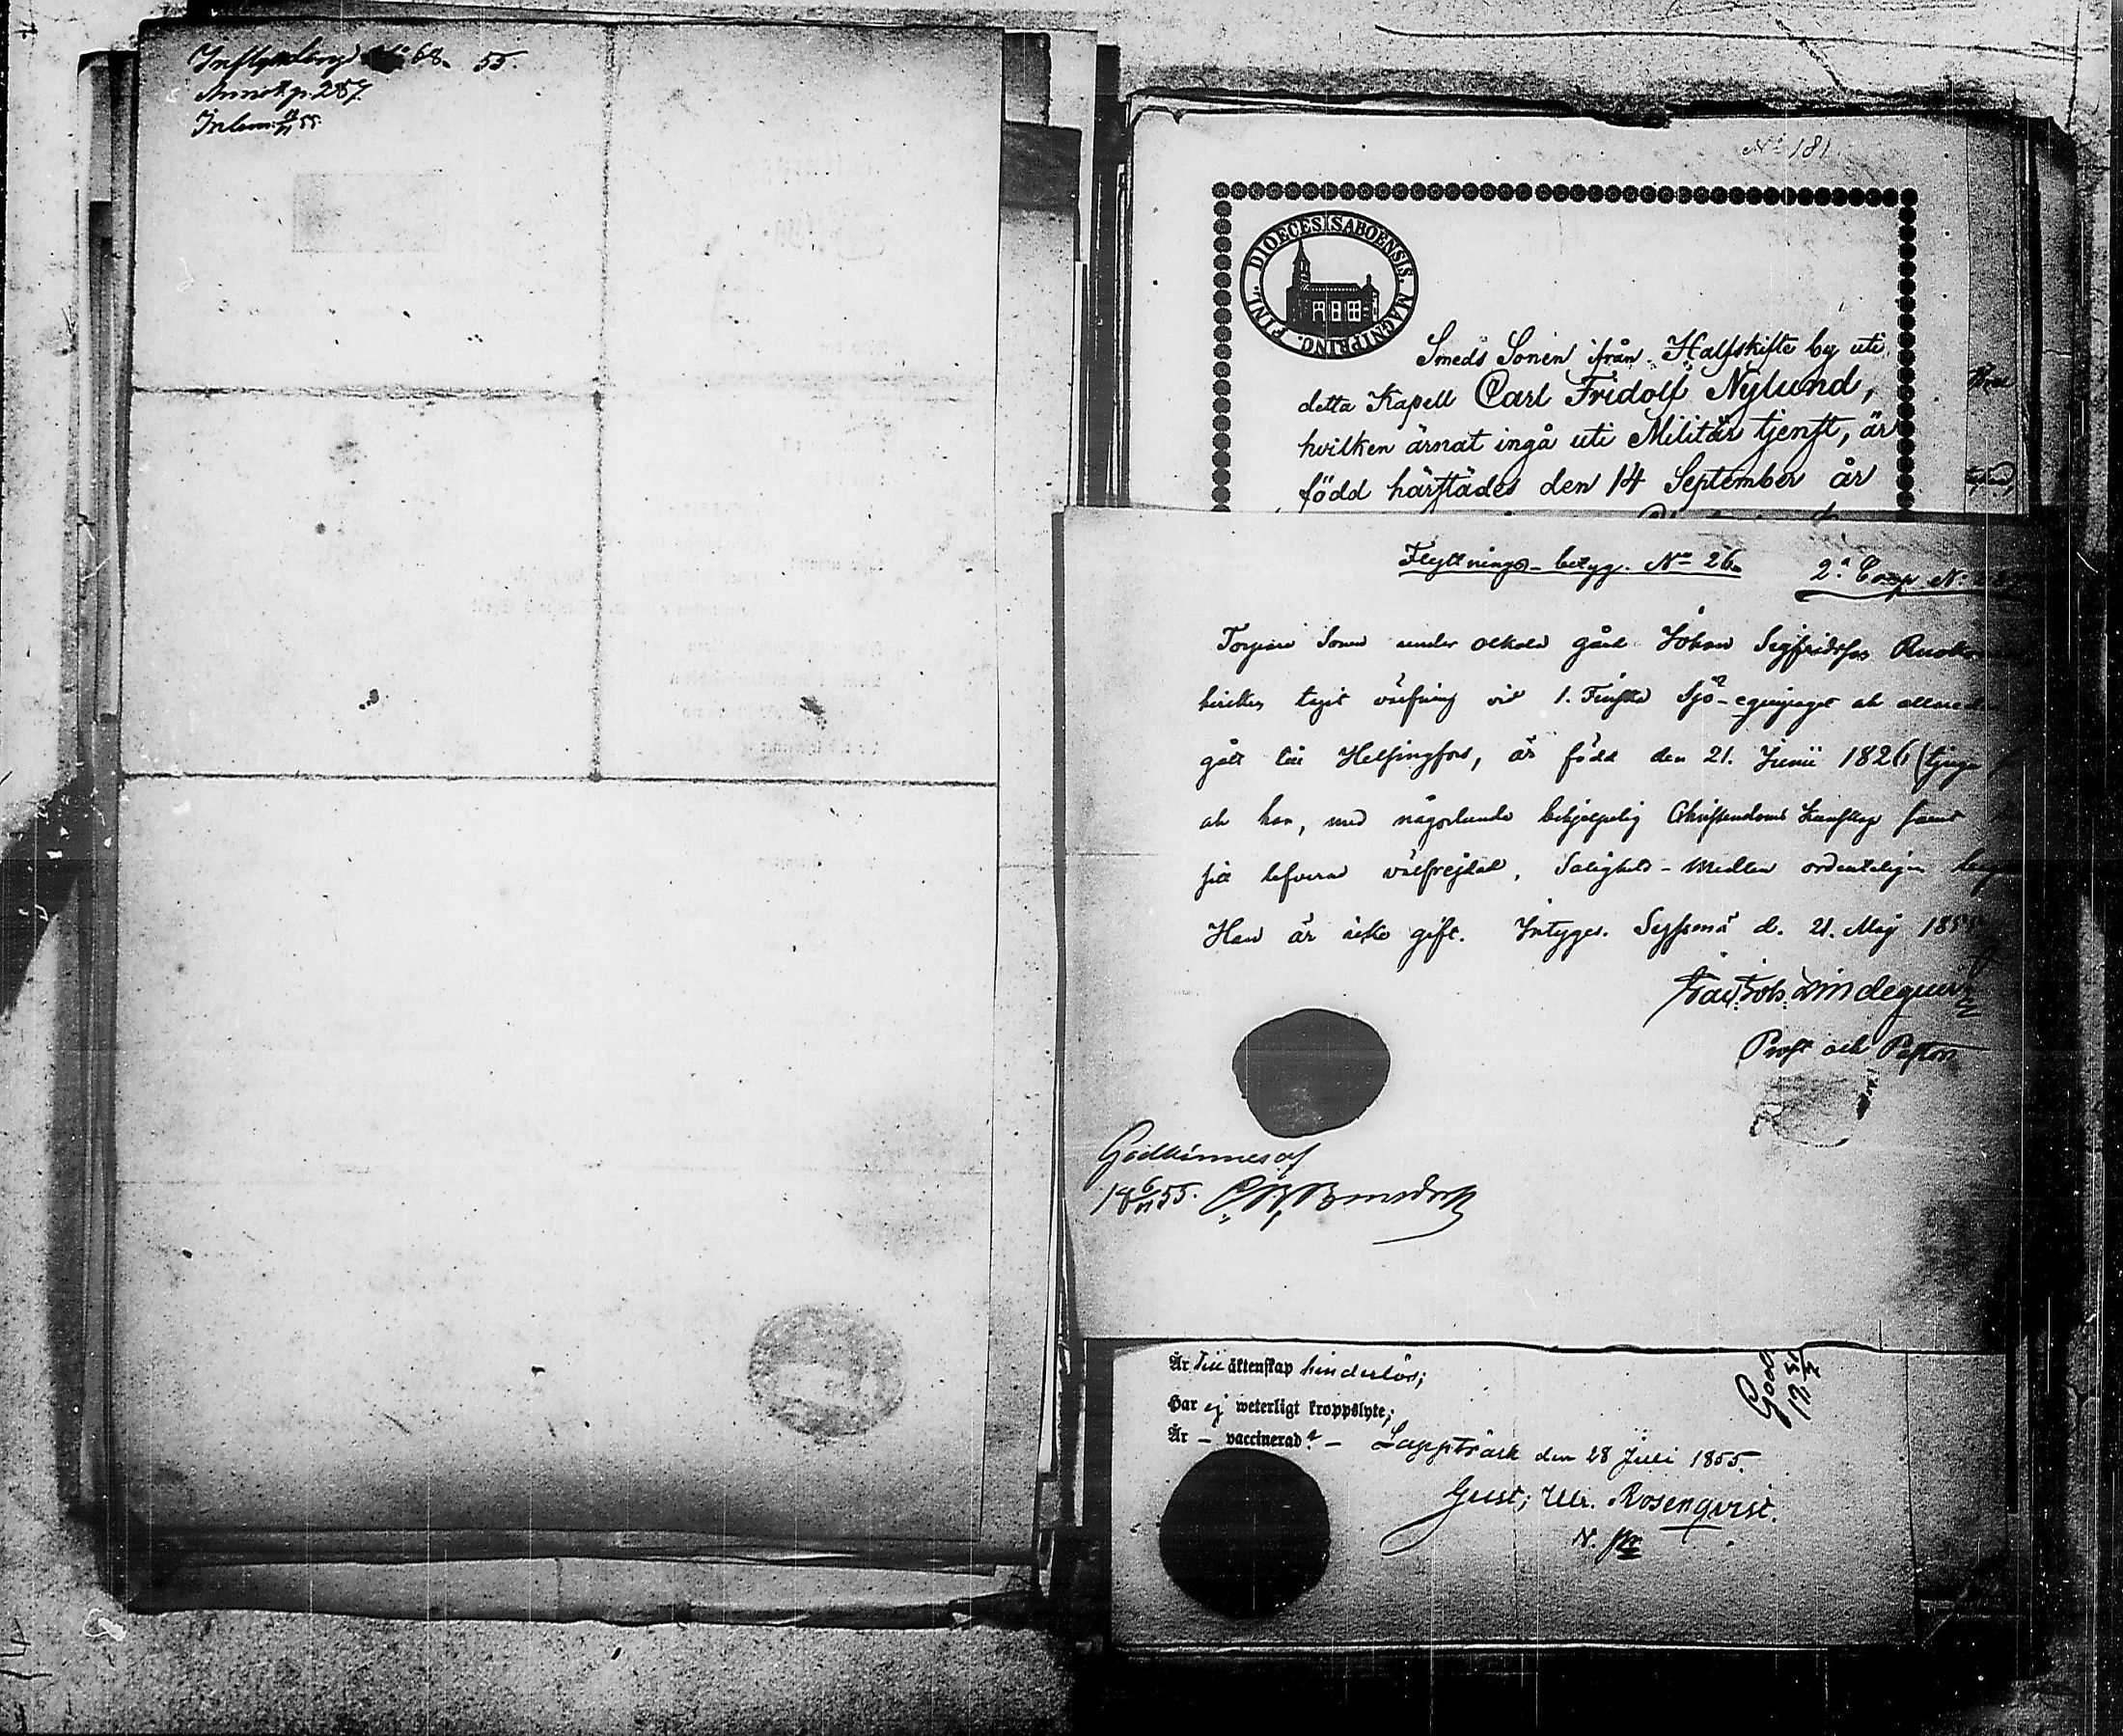 Inflyttn.betyg N:o 68. 55.
Annot. p. 287.
Inlemn. 55.
N:o 181.
DIOECESIS ABOENSIS. MAGNI PRINC. FINL.
Smeds Sonen ifrån Halfskifte by uti
detta Kapell Carl Fridolf Nylund,
hvilken ärnat ingå uti Militär tjenst, är
född härstädes den 14 September år
Flyttnings-betyg. N:o 26.
2:a Comp. N:o
Torpare Sonen under gård Johan Sigfridsson
tagit värfning vid 1. Finska Sjö-equipaget och allaredan
gått till Helsingfors, är född den 21. Junii 1826 (tjugu
och har, med någorlunda behjelpelig Christendoms kunskap samt
sitt lefverne välfrejdad, Salighets-Medlen ordenteligen
Han är icke gift. Intygas. Sysmä d. 21. Maji 1855
Prost och Pastor
Godkännes af
18 6/11 55.
Är till äktenskap hinderlös;
Har ej weterligt kroppslyte;
Är – vaccinerad – Lappträsk den 28 Juli 1855.
Gust. Ulr. Rosenqvist.